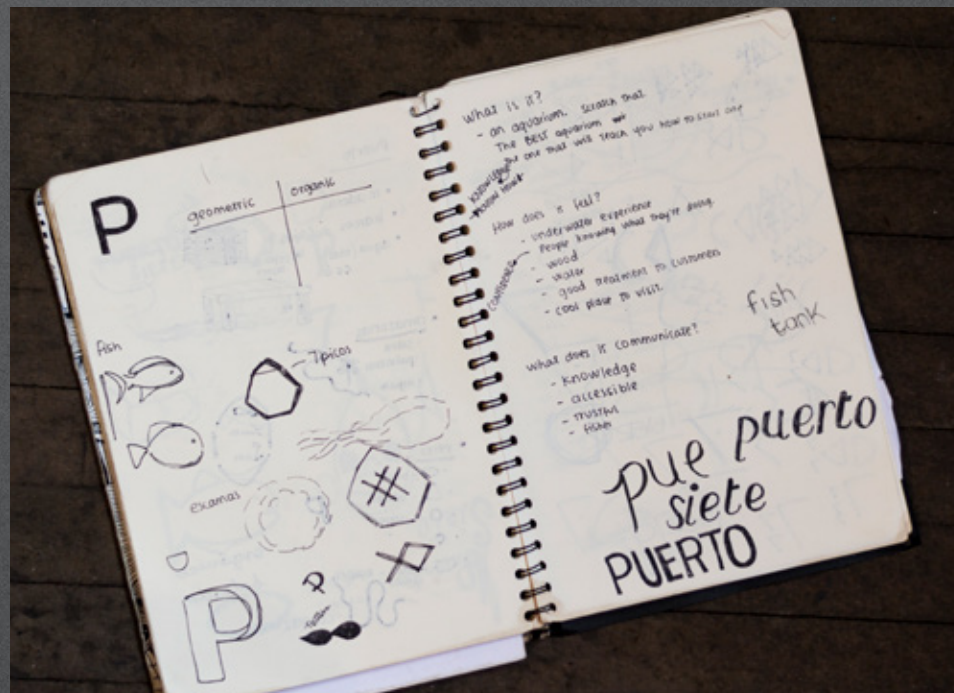 P
geometric
organic
fish
Tipicos
examas
#
P
P
What is it?
- an aquarium. Scratch that.
The BEST aquarium
the one that will teach you how to start one
KNOWLEDGE
How does it feel?
- underwater experience
- People knowing what they're doing.
- wood
- water
- good treatment to customers
- cool place to visit.
CONFIDENCE
fish
tank
What does it communicate?
- knowledge
- accessible
- trustful
- fishes
pue puerto
siete
PUERTO